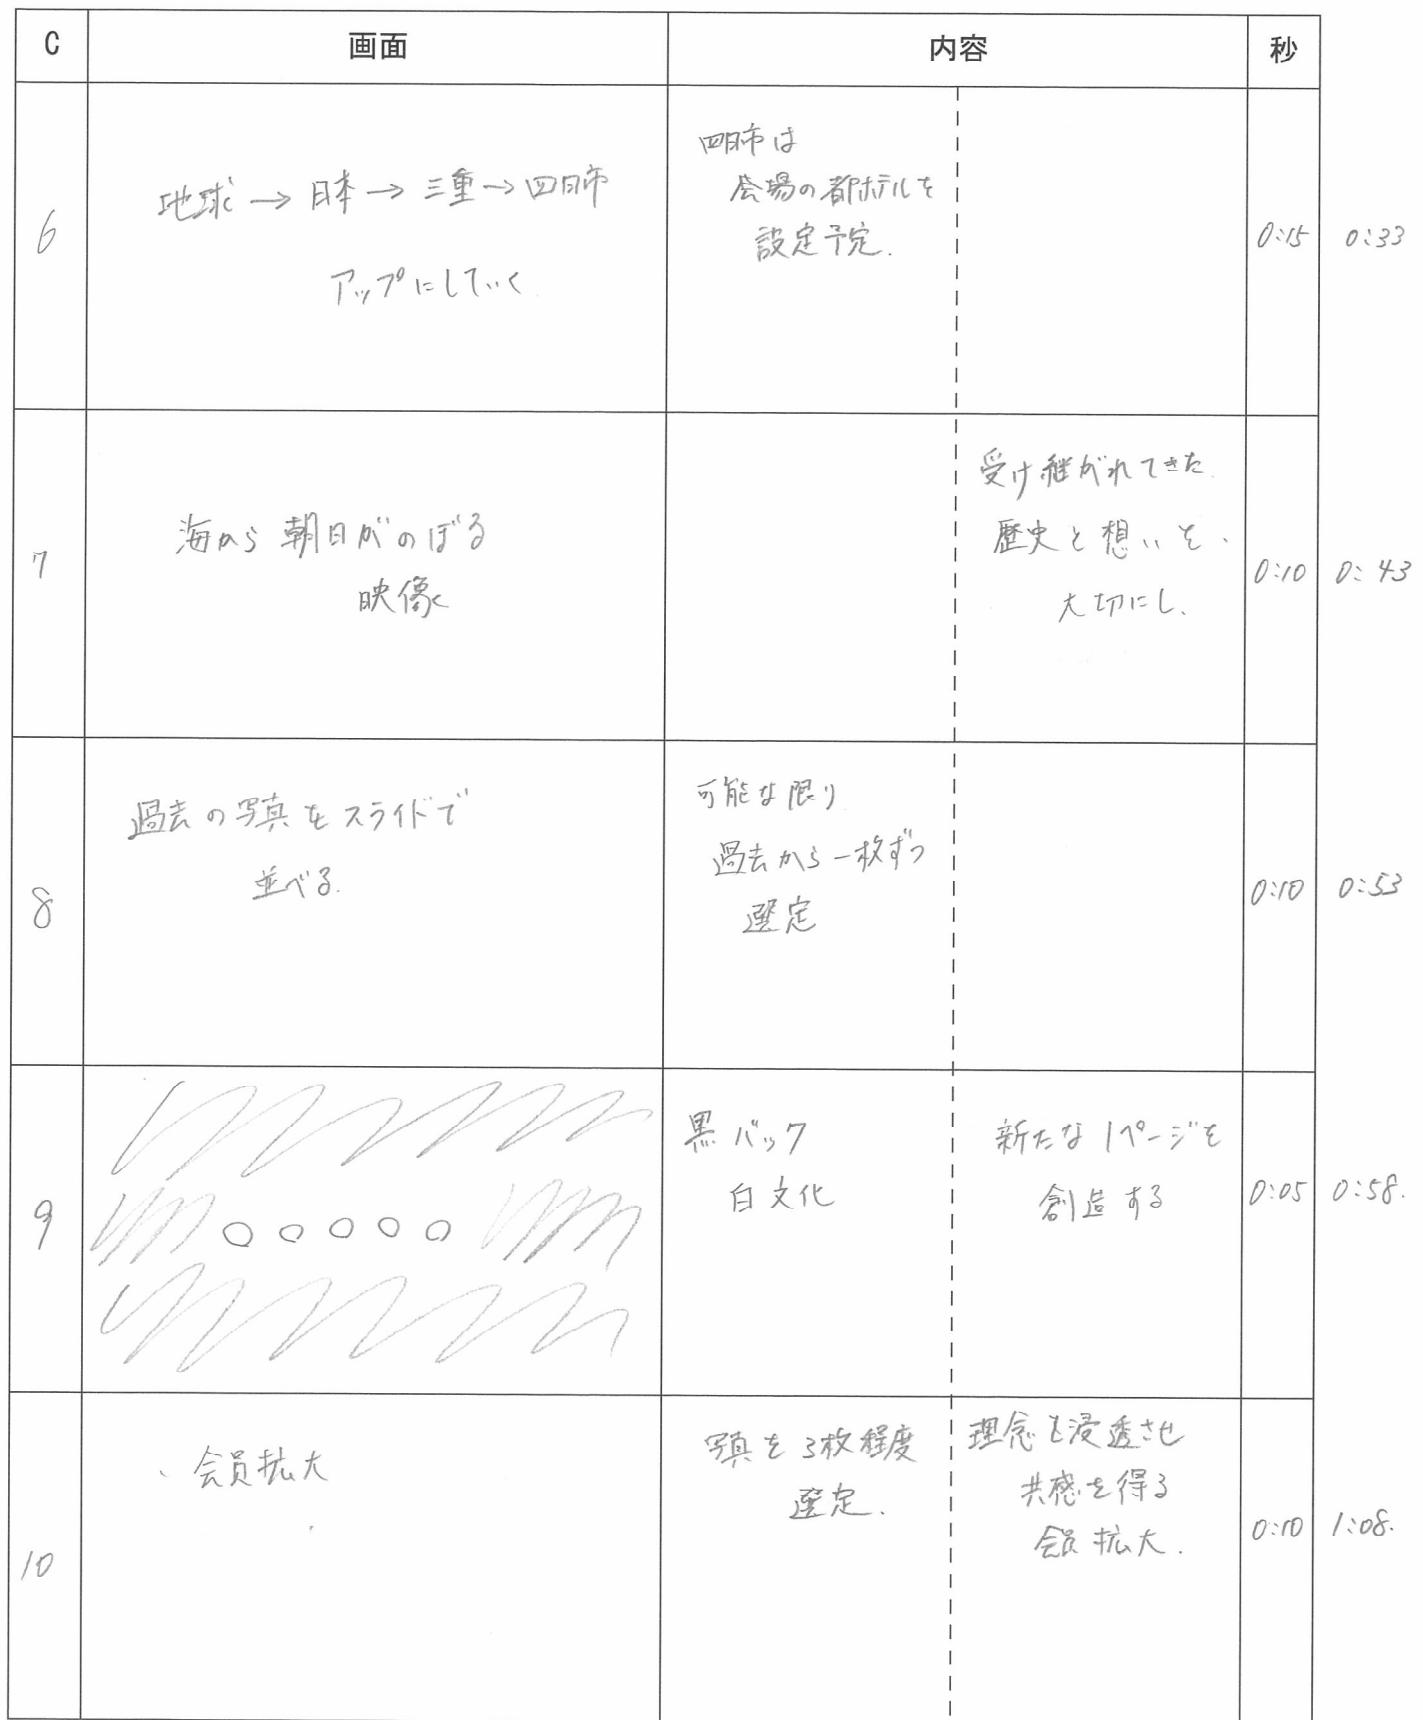 C 画面 内容 秒
6
地球→日本→三重→四日市
アップにしていく
四日市は
会場の都ホテルを
設定予定.
0:15 0:33
7
海から朝日がのぼる
映像
受け継がれてきた
歴史と想いを、
大切にし、
0:10 0:43
8
過去の写真をスライドで
並べる.
可能な限り
過去から一枚ずつ
選定
0:10 0:53
9
○○○○○
黒バック
白文化
新たな1ページを
創造する
0:05 0:58.
10
、会員拡大
写真を3枚程度
選定.
理念を浸透させ
共感を得る
会員拡大.
0:10 1:08.